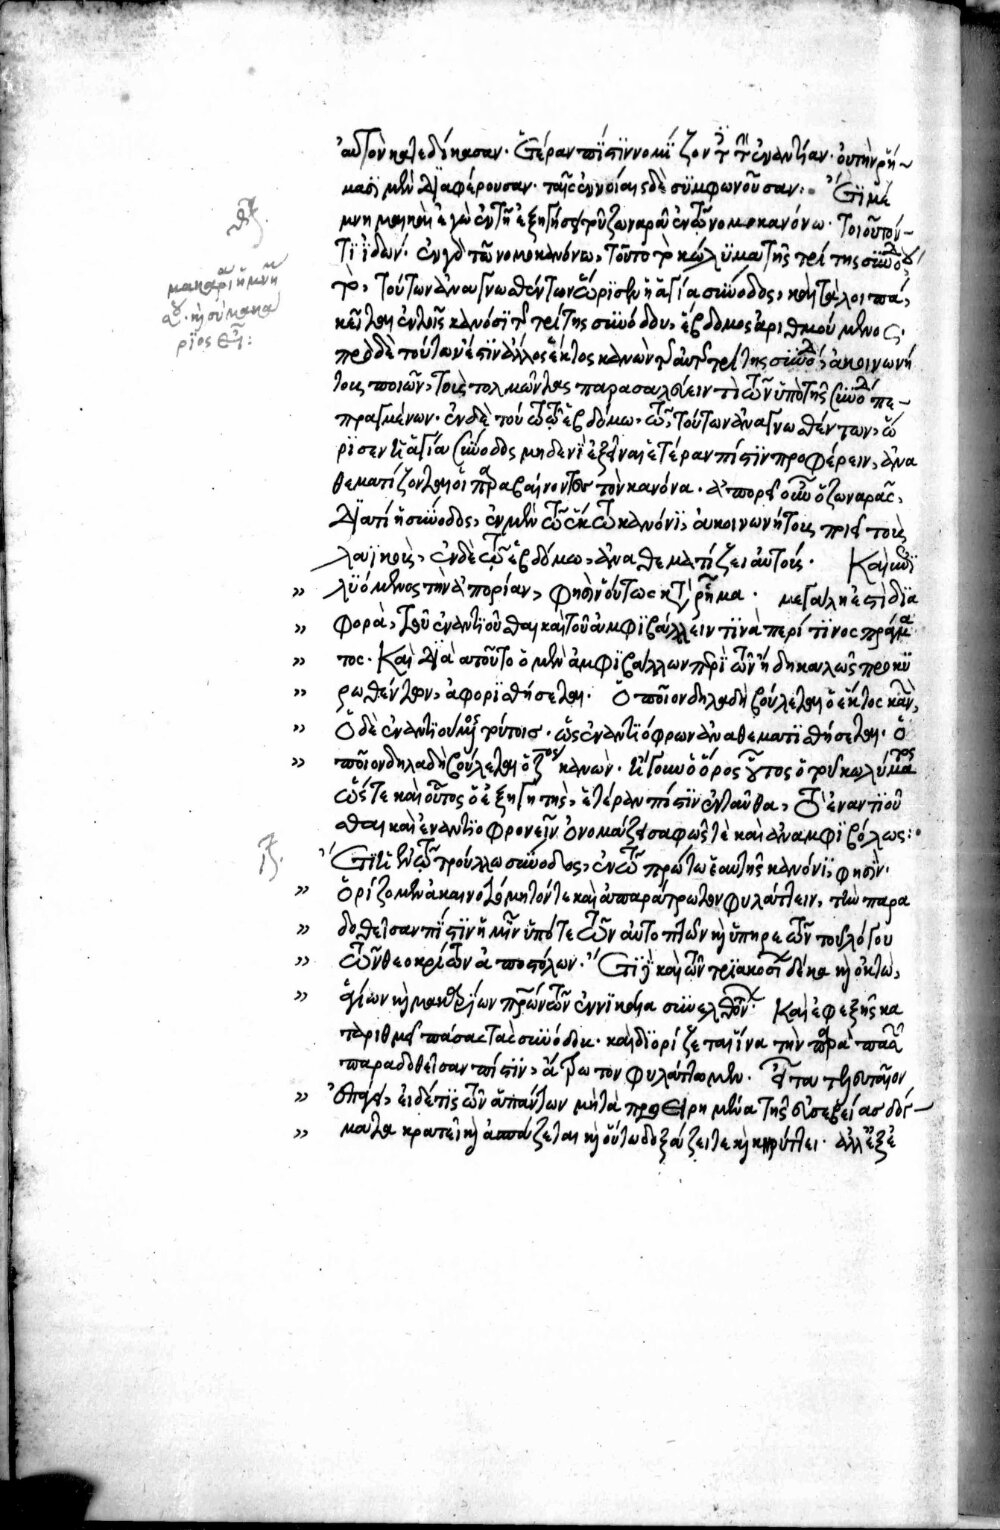 αὐτὸν κατεδίκασαν. Ἑτέραν πίστιν νομίζον τὴν ἐναντίαν. οὐ τὴν ῥή-
μασι μὲν διαφέρουσαν. ταῖς ἐννοίαις δὲ συμφωνοῦσαν: Ἔτι μέ
μνημαι καὶ ἐγὼ ἐν τῇ ἐξηγήσει τοῦ ζωναρᾶ ἐν τῷ νομοκανόνω. τοιοῦτόν
τι ἰδών. ἐν τῶ νομοκανόνω, τοῦτο κώλυμα τῆς τρίτης συνόδου
τούτων ἀναγνωθέντων ὥρισεν ἡ ἁγία σύνοδος, καὶ τὰ λοιπά,
κεῖται ἐν τοῖς κανόσι τῆς τρίτης συνόδου, ἕβδομος ἀριθμούμενος.
πρὸ δὲ τούτων ἐστὶν ἄλλος ἕκτος κανὼν τῆς αὐτῆς τρίτης συνόδου, ἀκοινωνή
τους ποιῶν, τοὺς τολμῶντας παρασαλεύειν τι τῶν ὑπὸ τῆς συνόδου πε-
πραγμένων. ἐν δὲ τούτω τῶ ἑβδόμω, τῶ, τούτων ἀναγνωθέντων, ὥ
ρισεν ἡ ἁγία σύνοδος μηδενὶ ἐξεῖναι ἑτέραν πίστιν προφέρειν, ἀνα
θεματίζονται οἱ παραβαίνοντες τὸν κανόνα. ἀπορεῖ οὖν ὁ ζωναρᾶς,
διατί ἡ σύνοδος, ἐν μὲν τῶ ἕκτω κανόνι, ἀκοινωνήτους ποιεῖ τοὺς
λαϊκοὺς, ἐν δὲ τῶ ἑβδόμω, ἀναθεματίζει αὐτούς. Καὶ
λυόμενος τὴν ἀπορίαν, φησὶν οὕτως κατὰ ῥῆμα. μεγάλη ἐστὶ δια
φορὰ, τοῦ ἐναντιοῦσθαι καὶ τοῦ ἀμφιβάλλειν τινὰ περί τινος πράγμα
τος. Καὶ διὰ τοῦτο ὁ μὲν ἀμφιβάλλων περὶ τῶν ἤδη καλῶς προκυ
ρωθέντων, ἀφορισθήσεται. Ὁποῖον δηλαδὴ βούλεται ὁ ἕκτος κανών,
Ὁ δὲ ἐναντιούμενος τούτοις. ὡς ἐναντιόφρων ἀναθεματισθήσεται. ὁ
ποῖον δηλαδὴ βούλεται ὁ ζος κανών. ἤγουν ὁ ὅρος οὗτος ὁ τοῦ κωλύματος
ὥστε καὶ οὗτος ὁ ἐξηγητὴς, ἑτέραν πίστιν ἐνταῦθα, τὸ ἐναντιοῦ
σθαι καὶ ἐναντιοφρονεῖν ὀνομάζει σαφῶς τὲ καὶ ἀναμφιβόλως:
Ἔτι ἡ ἐν τῶ τρούλλω σύνοδος, ἐν τῶ πρώτω ἑαυτῆς κανόνι, φησίν.
Ὁρίζομεν ἀκαινοτόμητόν τε καὶ ἀπαράτρωτον φυλάττειν, τὴν παρα
δοθεῖσαν πίστιν ἡμῖν ὑπό τε τῶν αὐτοπτῶν καὶ ὑπηρετῶν τοῦ λόγου
τῶν θεοκρίτων ἀποστόλων. Ἔτι καὶ τῶν τριακοσίων δέκα καὶ ὀκτὼ,
ἁγίων καὶ μακαρίων πατέρων τῶν ἐν νικαία συνελθόντων. Καὶ ἐφεξῆς κα
ταριθμεῖ πάσας τὰς συνόδους. καὶ διορίζεται ἵνα τὴν παρὰ πασῶν
παραδοθεῖσαν πίστιν, ἄτρωτον φυλάττωμεν. εἶτα τελευταῖον
ἐπάγει, εἰ δέ τις τῶν ἁπάντων μὴ τὰ προειρημένα τῆς εὐσεβείας δόγ-
ματα κρατεῖ καὶ ἀσπάζεται καὶ οὕτω δοξάζει τε καὶ κηρύττει. ἀλλ' ἐξε
μακάριε ἡ μνήμη
σου καὶ σὺ μακά
ριος εἶ: